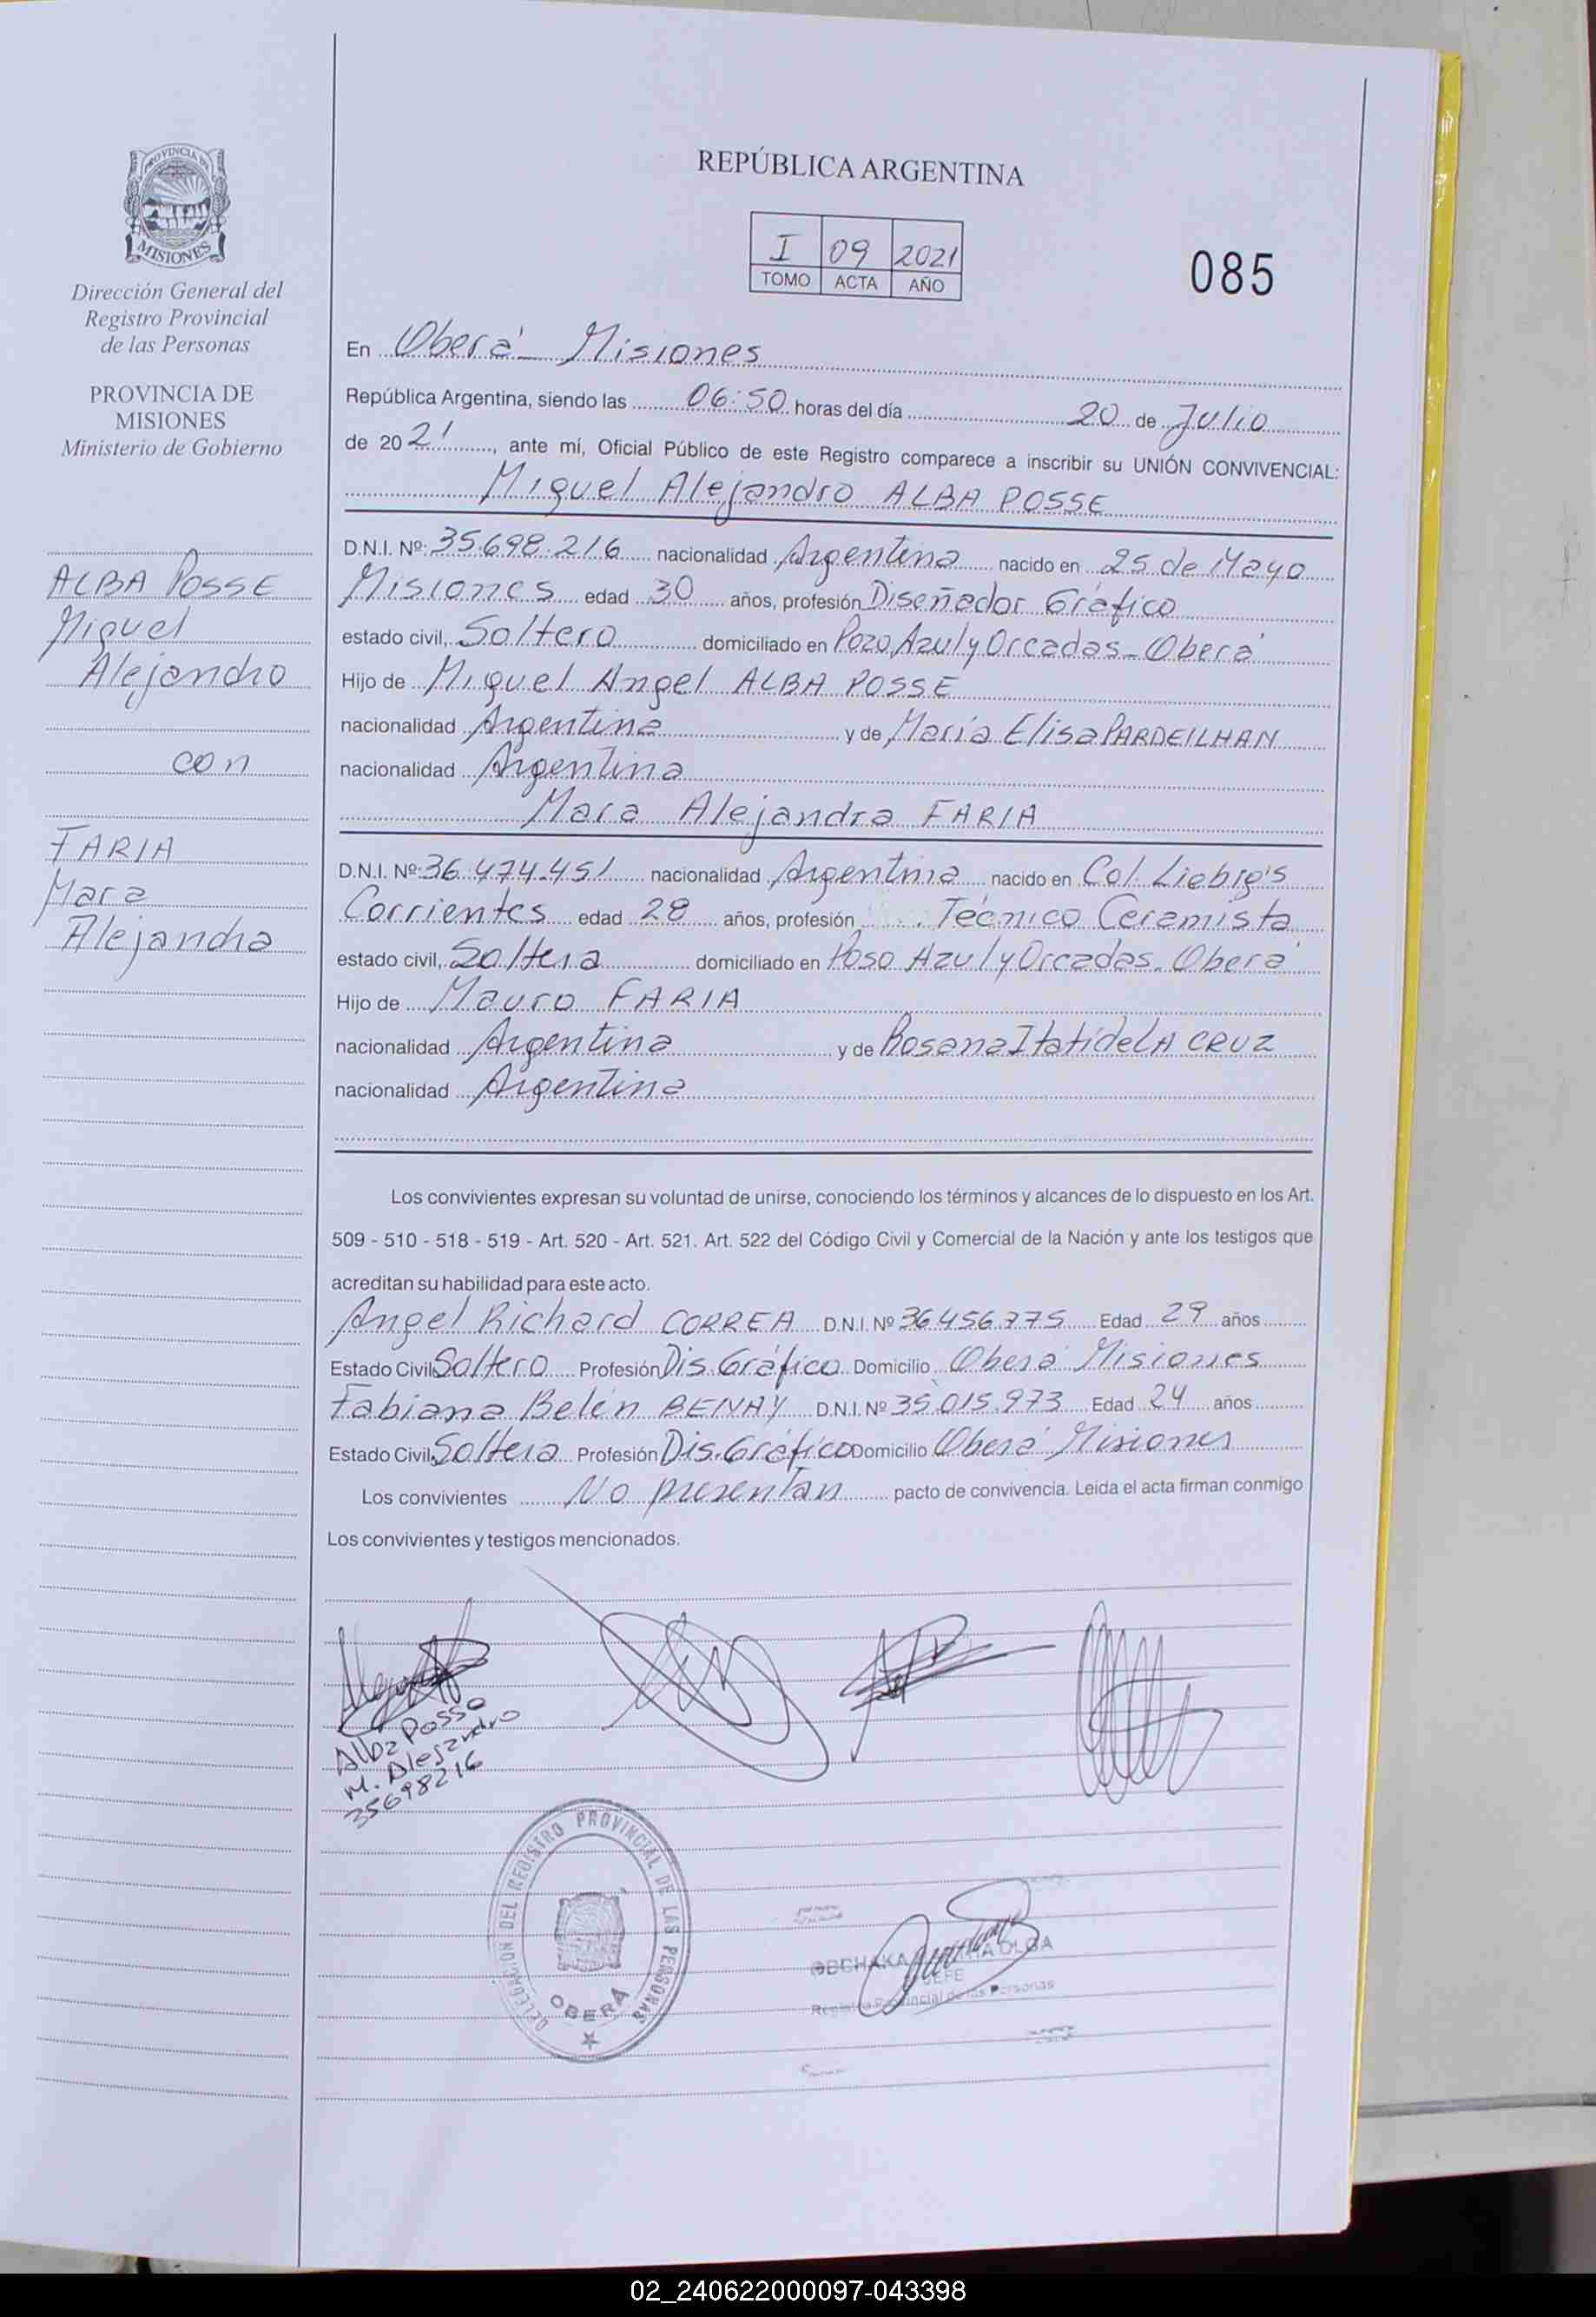 PROVINCIA DE
MISIONES
Dirección General del
Registro Provincial
de las Personas
PROVINCIA DE
MISIONES
Ministerio de Gobierno
ALBA POSSE
Miguel
Alejandro
con
FARIA
Mara
Alejandra
REPÚBLICA ARGENTINA
I 09 2021
TOMO ACTA AÑO
085
En Oberá - Misiones
República Argentina, siendo las 06:50 horas del día 20 de Julio
de 2021, ante mí, Oficial Público de este Registro comparece a inscribir su UNIÓN CONVIVENCIAL:
Miguel Alejandro ALBA POSSE
D.N.I. Nº: 35.698.216 nacionalidad Argentina nacido en 25 de Mayo
Misiones edad 30 años, profesión Diseñador Gráfico
estado civil, Soltero domiciliado en Pozo Azul y Orcadas - Oberá
Hijo de Miguel Angel ALBA POSSE
nacionalidad Argentina y de María Elisa PARDEILHAN
nacionalidad Argentina
Mara Alejandra FARIA
D.N.I. Nº: 36.474.451 nacionalidad Argentina nacido en Col. Liebig's
Corrientes edad 28 años, profesión Técnico Ceramista
estado civil, Soltera domiciliado en Poso Azul y Orcadas. Oberá
Hijo de Mauro FARIA
nacionalidad Argentina y de Rosana Itatí de LA CRUZ
nacionalidad Argentina
Los convivientes expresan su voluntad de unirse, conociendo los términos y alcances de lo dispuesto en los Art.
509 - 510 - 518 - 519 - Art. 520 - Art. 521. Art. 522 del Código Civil y Comercial de la Nación y ante los testigos que
acreditan su habilidad para este acto.
Angel Richard CORREA D.N.I. Nº 36.456.775 Edad 29 años
Estado Civil Soltero Profesión Dis. Gráfico Domicilio Oberá Misiones
Fabiana Belén BENAY D.N.I. Nº 35.015.973 Edad 24 años
Estado Civil Soltera Profesión Dis. Gráfico Domicilio Oberá Misiones
Los convivientes No presentan pacto de convivencia. Leída el acta firman conmigo
Los convivientes y testigos mencionados.
Alba Posse
M. Alejandro
35698216
DELEGACIÓN DEL REGISTRO PROVINCIAL DE LAS PERSONAS
OBERÁ
OLGA
JEFE
Registro Provincial de las Personas
02_240622000097-043398